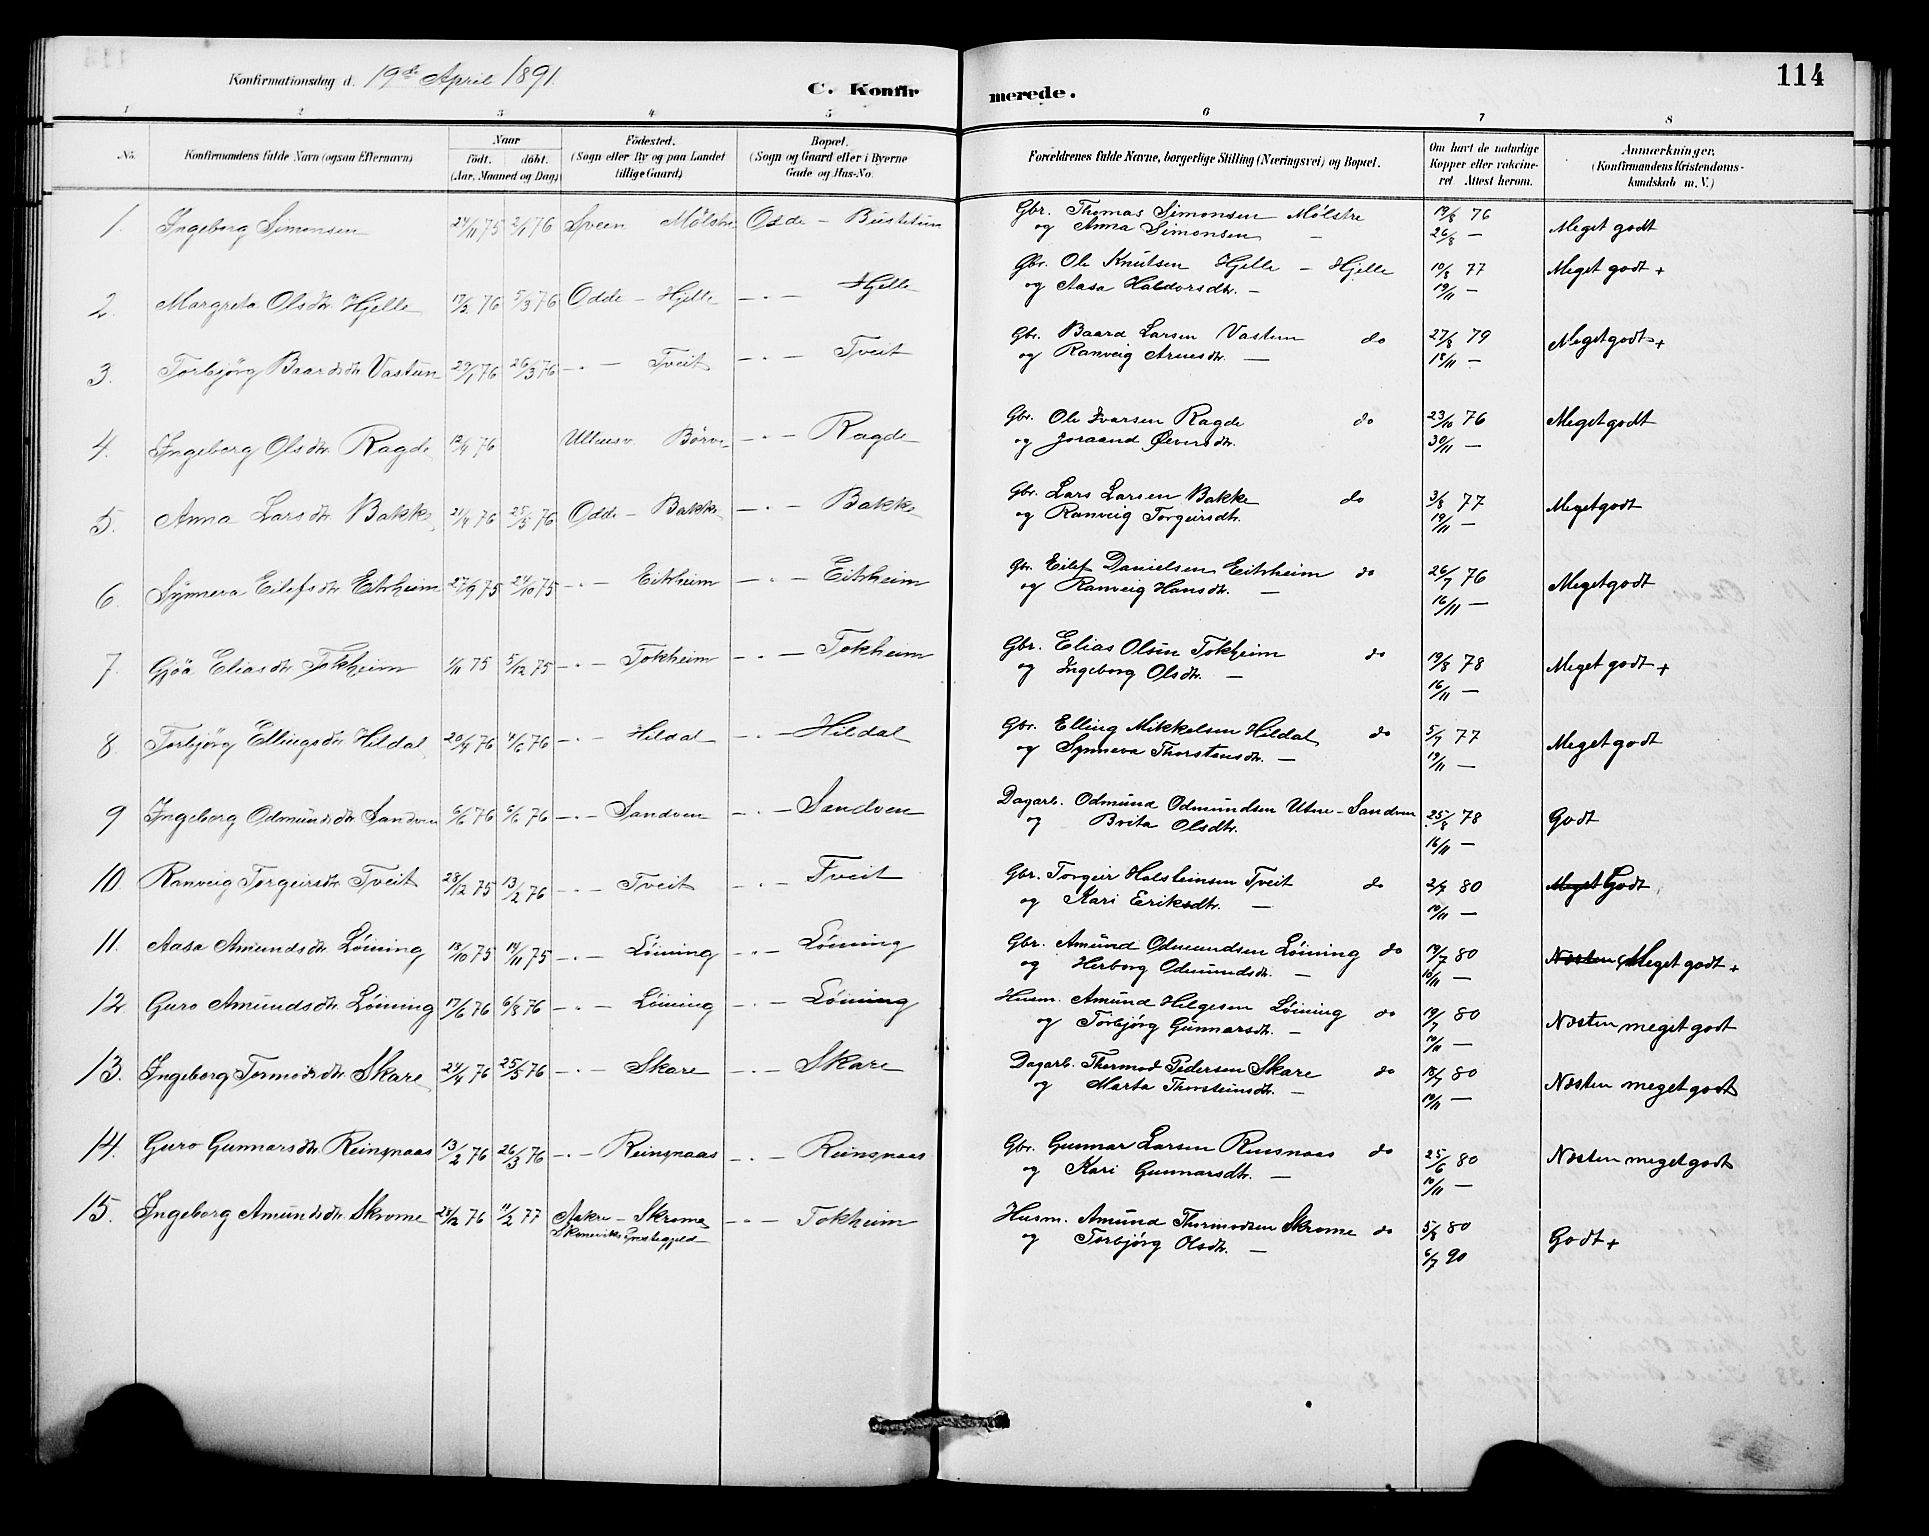 114
Konfirmationsdag d. 19de April 1891.
C. Konfirmerede.
1 2 3 4 5 6 7 8
No. Konfirmandens fulde Navn (ogsaa Efternavn) Naar födt. döbt. (Aar, Maaned og Dag) Födested. (Sogn eller By og paa Landet tillige Gaard) Bopæl. (Sogn og Gaard eller i Byerne Gade og Hus-No. Forældrenes fulde Navne, borgerlige Stilling (Næringsvei) og Bopæl. Om havt de naturlige Kopper eller vakcineret Attest herom. Anmærkninger, (Konfirmandens Kristendomskundskab m. V.)
1. Ingeborg Simonsen 24/11 75 2/1 76 Sveen Mölstre Odde - Bustetun Gbr. Thomas Simonsen Mölstre 19/8 76 Meget godt
og Anna Simonsen — 26/8 —
2. Margreta Olsdtr. Hjelle 17/2 76 5/3 76 Odde - Hjelle — . — Hjelle Gbr. Ole Knutsen Hjelle - Hjelle 10/8 77 Meget godt +
og Aasa Haldorsdtr. — 19/11 —
3. Torbjörg Baardsdtr. Vastun 29/1 76 26/3 76 — . — Tveit — . — Tveit Gbr. Baard Larsen Vastun do 27/8 79 Meget godt +
og Ranveig Arnesdtr. — 18/11 —
4. Ingeborg Olsdtr. Ragde 12/4 76 Börve — . — Ragde Gbr. Ole Ivarsen Ragde do 23/10 76 Meget godt
og Joraand 30/11 —
5. Anna Larsdtr. Bakke 21/4 76 25/5 76 Odde - Bakke — . — Bakke Gbr. Lars Larsen Bakke do 3/8 77 Meget godt
og Ranveig Torgeirsdtr. 19/11 —
6. Synneva Eilefsdtr. Eitrheim 27/9 75 24/10 75 — . — Eitrheim — . — Eitrheim Gbr. Eilef Danielsen Eitrheim do 26/7 76 Meget godt
og Ranveig Hansdtr. — 16/11 —
7. Gjöa Eliasdtr. Tokheim 1/11 75 5/12 75 — . — Tokheim — . — Tokheim Gbr. Elias Olsen Tokheim do 19/8 78 Meget godt +
og Ingeborg Olsdtr. — 16/11 —
8. Torbjörg Ellingsdtr. Hildal 20/4 76 4/6 76 — . — Hildal — . — Hildal Gbr. Elling Mikkelsen Hildal do 5/7 77 Meget godt
og Synneva Thorstensdtr. — 19/11 —
9 Ingeborg Odmundsdtr. Sandven 6/6 76 6/6 76 — . — Sandven — . — Sandven Dagarb. Odmund Odmundsen Utne - Sandven 25/8 78 Godt
og Brita Olsdtr. 16/11 —
10. Ranveig Torgeirsdtr. Tveit 28/12 75 13/2 76 — . — Tveit — . — Tveit Gbr. Torgeir Halsteinsen Tveit do 2/7 80 Meget Godt
og Kari Eriksdtr. — 10/11 —
11. Aasa Amundsdtr. Löining 13/10 75 14/11 75 — . — Löining — . — Löining Gbr. Amund Odmundsen Löining do 19/7 80 Næsten Meget godt +
og Herborg Odmundsdtr. — 10/11 —
12. Guro Amundsdtr. Löining 17/6 76 6/8 76 — . — Löining — . — Löining Husm. Amund Helgesen Löining do 19/7 80 Næsten meget godt
og Torbjörg Gunnarsdtr. — 10/11 —
13. Ingeborg Tormodsdtr. Skare 24/4 76 25/5 76 — . — Skare — . — Skare Dagarb. Thormod Pedersen Skare do 18/7 80 Næsten meget godt
og Marta Thorsteinsdtr. — 10/11 —
14. Guro Gunnarsdtr. Reinsnaas 13/2 76 26/3 76 — . — Reinsnaas — . — Reinsnaas Gbr. Gunnar Larsen Reinsnaas do 25/6 80 Næsten meget godt
og Kari Gunnarsdtr. — 10/11 —
15. Ingeborg Amundsdtr. Skrome 28/12 76 11/2 77 Aakre - Skrome — . — Tokheim Husm. Amund Thormodsen Skrome do 5/8 80 Godt +
Skonevik Præstegjeld og Torbjörg Olsdtr. — 6/7 90